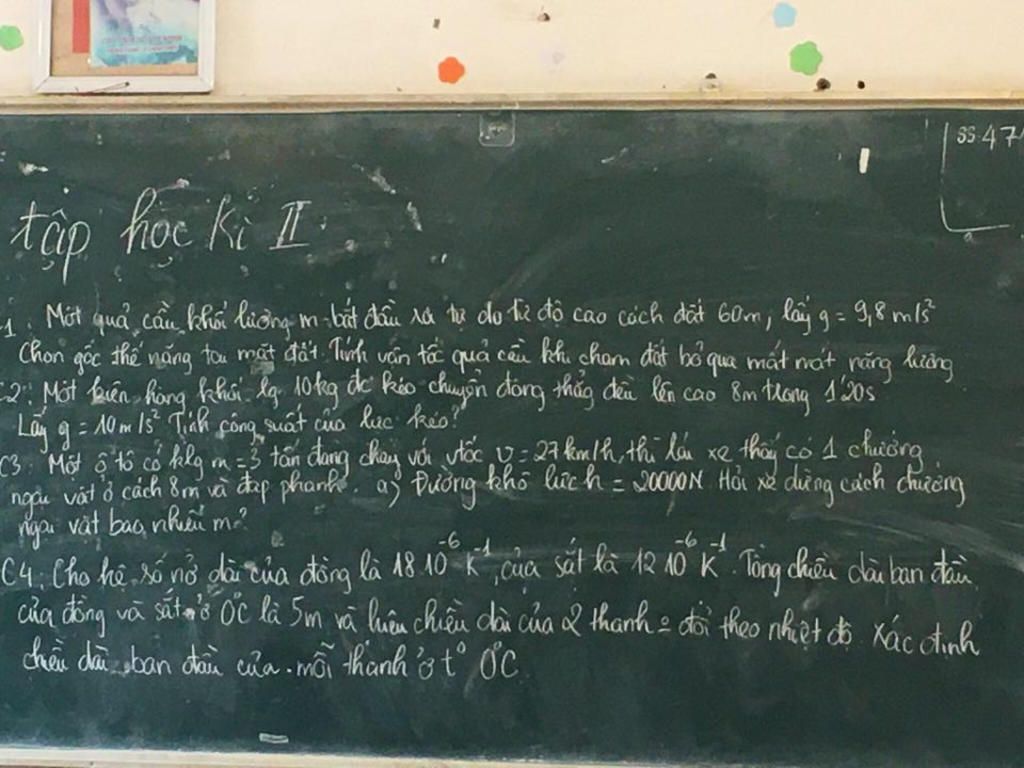 SS: 47
tập học kì II
1: Một quả cầu khối lượng m bắt đầu rơi tự do từ độ cao cách đất 60m, lấy g = 9,8 m/s²
Chọn gốc thế năng tại mặt đất. Tính vận tốc quả cầu khi chạm đất bỏ qua mất mát năng lượng
C2: Một kiện hàng khối lg 10kg đc kéo chuyển động thẳng đều lên cao 8m trong 1'20s
Lấy g = 10m/s² Tính công suất của lực kéo?
C3: Một ô tô có klg m = 3 tấn đang chạy với vtốc v = 27km/h, thì lái xe thấy có 1 chướng
ngại vật ở cách 8m và đạp phanh. a) Đường khô lực h = 20000N Hỏi xe dừng cách chướng
ngại vật bao nhiêu m?
C4: Cho hệ số nở dài của đồng là 18 10⁻⁶ K⁻¹, của sắt là 12 10⁻⁶ K⁻¹. Tổng chiều dài ban đầu
của đồng và sắt ở 0°C là 5m và hiệu chiều dài của 2 thanh o đổi theo nhiệt độ Xác định
chiều dài ban đầu của mỗi thanh ở t° 0°C